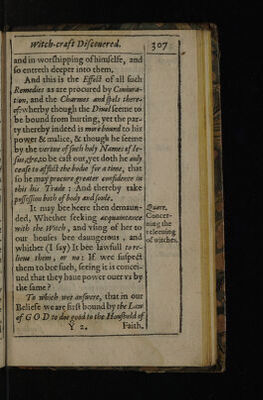 Witch-craft Discouered.
307
and in worshipping of himselfe, and
so entreth deeper into them.
And this is the Effect of all such
Remedies as are procured by Coniura-
tion, and the Charmes and spels there-
of: whereby though the Diuel seeme to
be bound from hurting, yet the par-
ty thereby indeed is more bound to his
power & malice, & though he seeme
by the vertue of such holy Names of Ie-
sus, &c. to be cast out, yet doth he only
cease to afflict the bodie for a time, that
so he may procure greater confidence in
this his Trade : And thereby take
possession both of body and soule.
It may bee heere then demaun-
ded, Whether seeking acquaintance
with the Witch, and vsing of her to
our houses bee daungerous, and
whither (I say) It bee lawfull to re-
lieue them, or no: If wee suspect
them to bee such, seeing it is concei-
ued that they haue power ouer vs by
the same ?
To which wee answere, that in our
Beliefe we are first bound by the Law
of GOD to doe good to the Houshold of
Y 2. Faith.
Quære,
Concer-
ning the
releeuing
of witches.